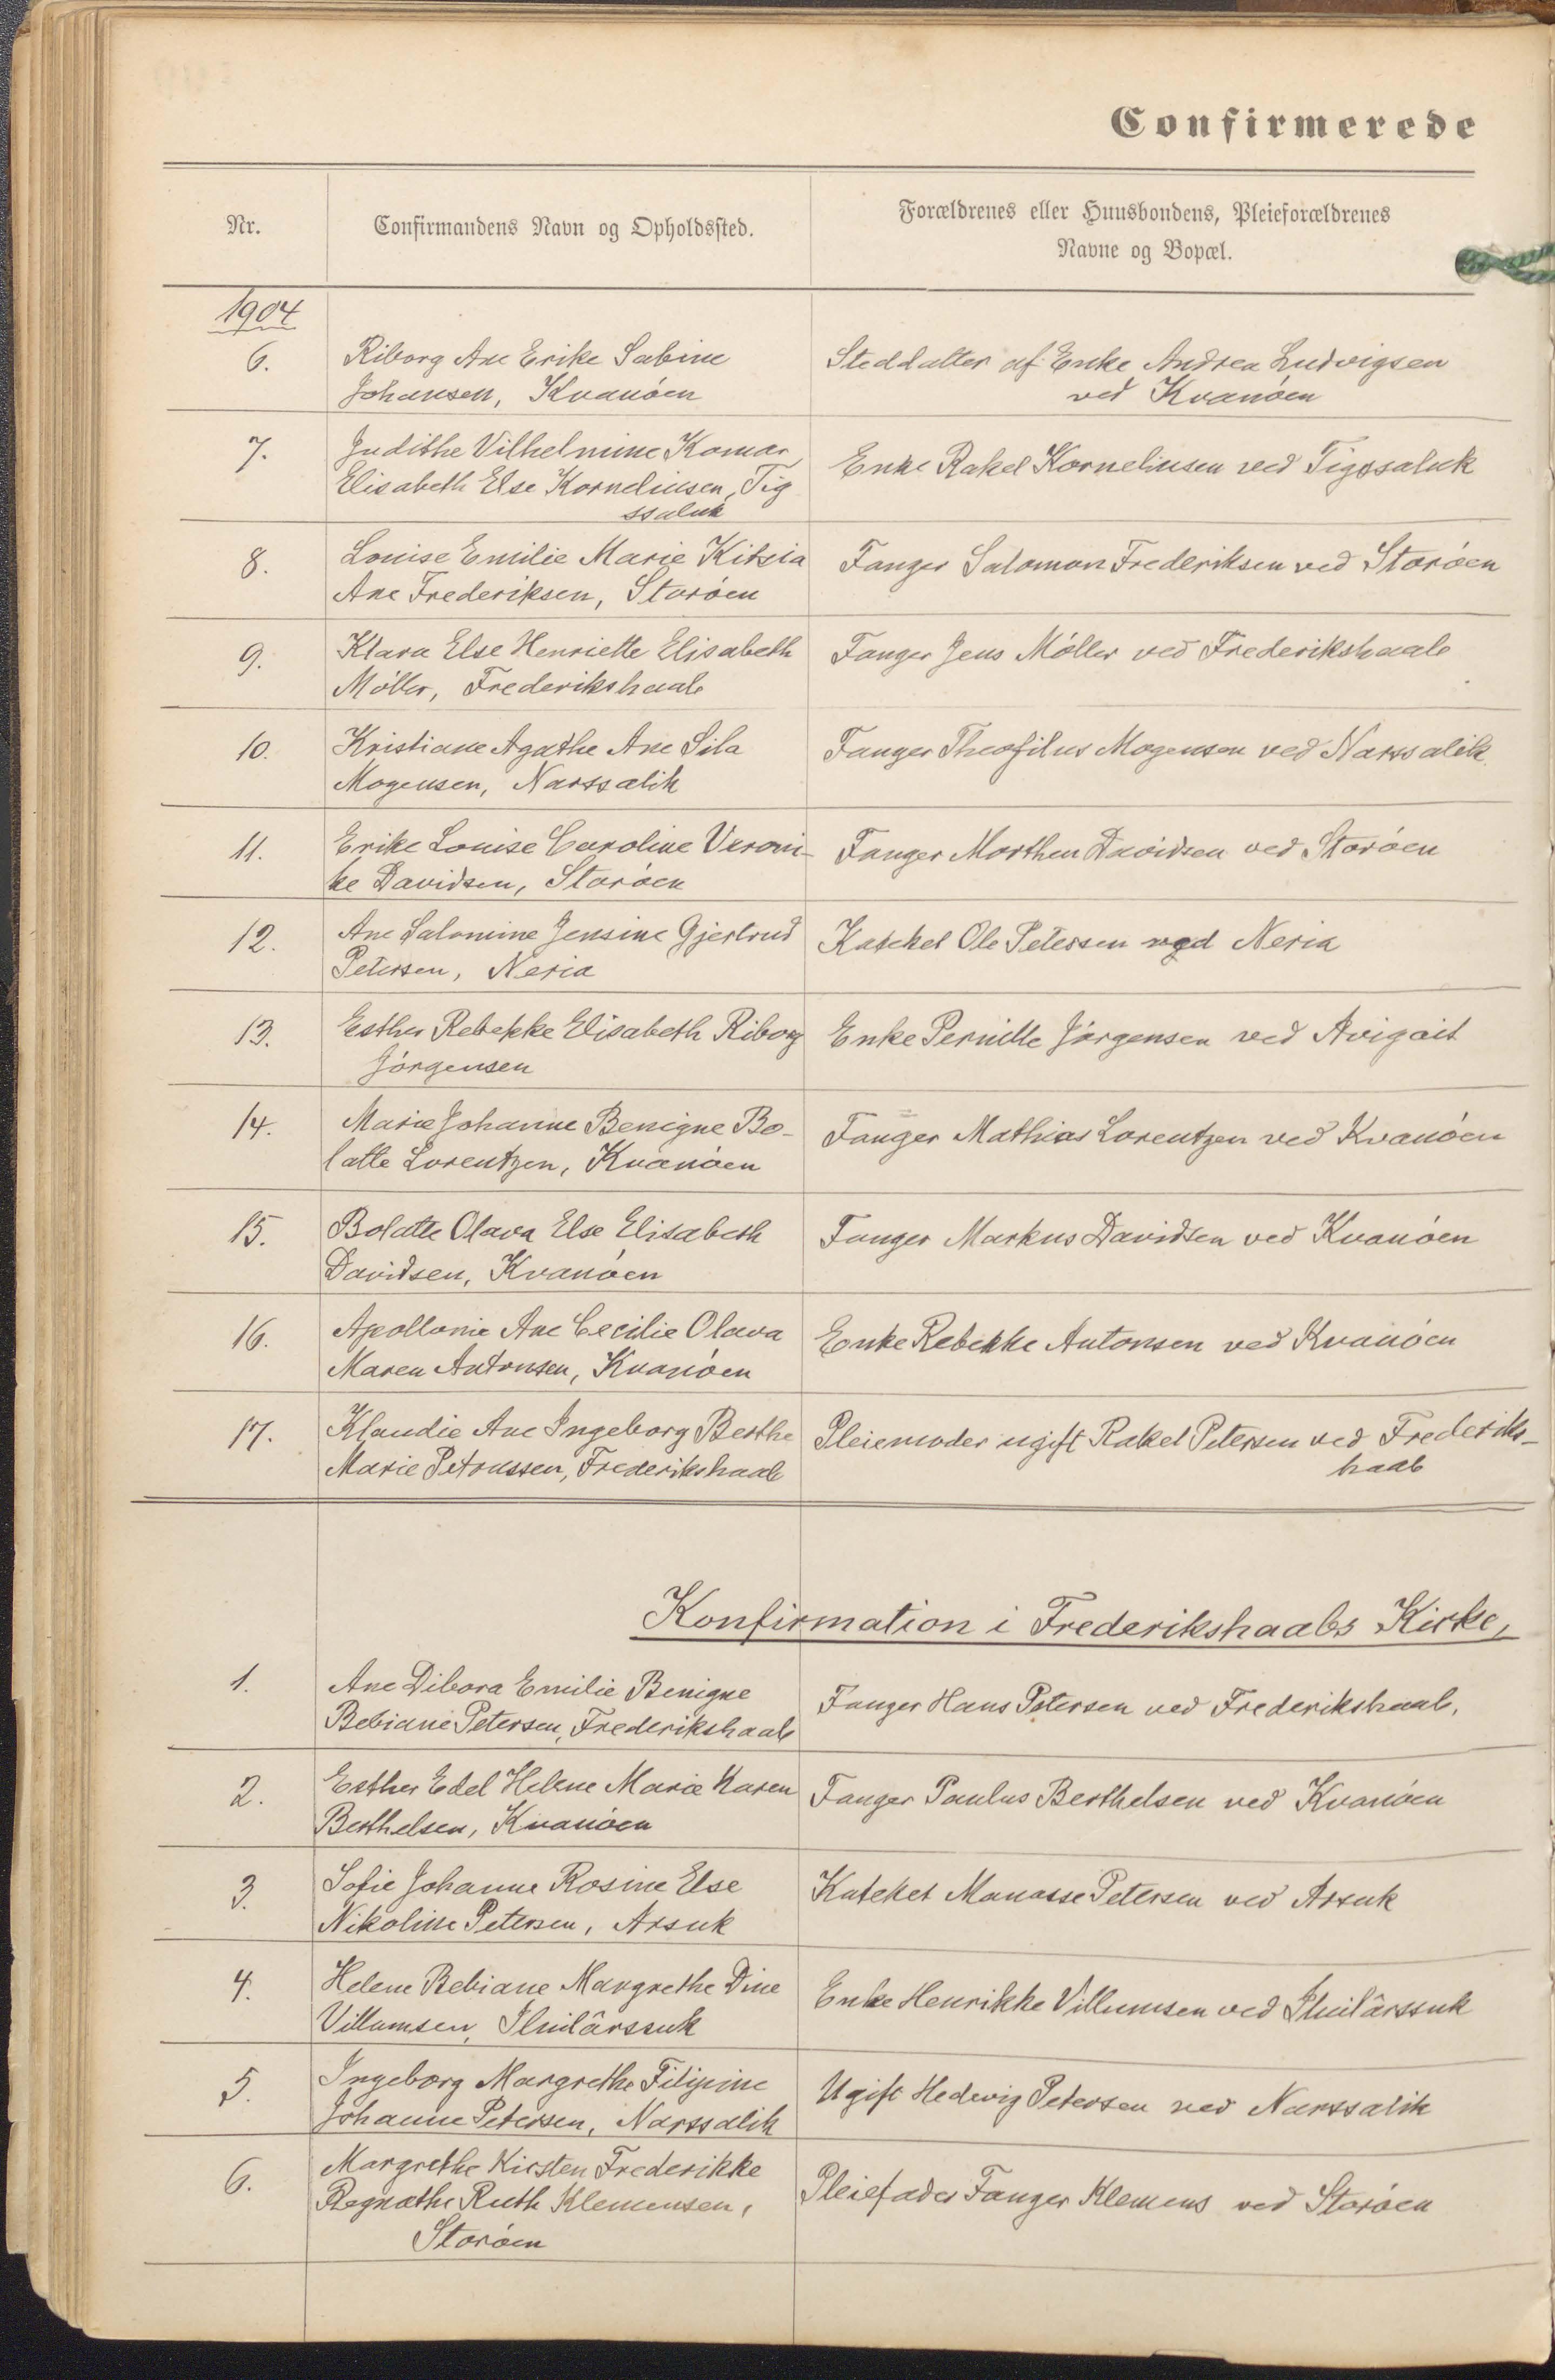 Confirmerede
Nr.
Confirmandens Navn og Opholdssted.
Forældrenes eller Huusbondens, Pleieforældrenes
Navne og Bopæl.
1904
6.
Riborg Ane Erike Sabine
Johansen, Kvanøen
Steddatter af Enke Andrea Ludvigsen
ved Kvanøen
7.
Judithe Vilhelmine Komar
Elisabeth Else Korneliusen, Tig
ssaluk
Enke Rakel Korneliusen ved Tigssaluk
8.
Louise Emilie Marie Kitsia
Ane Frederiksen, Storøen
Fanger Salomon Frederiksen ved Storøen
9.
Klara Else Henriette Elisabeth
Møller, Frederikshaab
Fanger Jens Møller ved Frederikshaab
10.
Kristiane Agathe Ane Sila
Mogensen, Narssalik
Fanger Theofilus Mogensen ved Narssalik
11.
Erike Louise Caroline Veroni-
ke Davidsen, Storøen
Fanger Morthen Davidsen ved Storøen
12.
Ane Salomine Jensine Gjertrud
Petersen, Neria
Kateket Ole Petersen ved Neria
13.
Esther Rebekke Elisabeth Riborg
Jørgensen
Enke Pernille Jørgensen ved Avigait
14.
Marie Johanne Benigne Bo-
latte Lorentzen, Kvanøen
Fanger Mathias Lorentzen ved Kvanøen
15.
Bolatte Olava Else Elisabeth
Davidsen, Kvanøen
Fanger Markus Davidsen ved Kvanøen
16.
Apollonie Ane Cecilie Olava
Maren Antonsen, Kvanøen
Enke Rebekke Antonsen ved Kvanøen
17.
Klaudie Ane Ingeborg Berthe
Marie Petrussen, Frederikshaab
Pleiemoder ugift Rakel Petersen ved Frederiks-
haab
Konfirmation i Frederikshaabs Kirke,
1.
Ane Dibora Emilie Benigne
Bebiane Petersen, Frederikshaab
Fanger Hans Petersen ved Frederikshaab.
2.
Esther Edel Helene Marie Karen
Berthelsen, Kvanøen
Fanger Paulus Berthelsen ved Kvanøen
3.
Sofie Johanne Rosine Else
Nikoline Petersen, Arsuk
Kateket Manasse Petersen ved Arsuk
4.
Helene Bebiane Margrethe Dine
Villumsen, Iluilârssuk
Enke Henrikke Villumsen ved Iluilârssuk
5.
Ingeborg Margrethe Filipine
Johanne Petersen, Narssalik
Ugift Hedevig Petersen ved Narssalik
6.
Margrethe Kirsten Frederikke
Regnathe Ruth Klemensen,
Storøen
Pleiefader Fanger Klemens ved Storøen